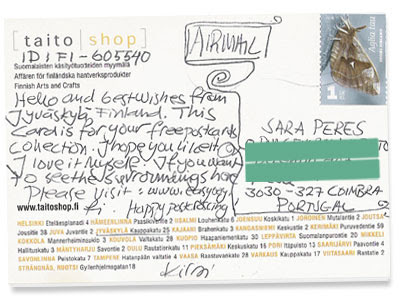 [ taito | shop ]
ID: FI-605540
Suomalaisten käsityötuotteiden myymälä
Affären för finländska hantverksprodukter
Finnish Arts and Crafts
AIRMAIL
Aglia tau
1
Hello and best wishes from
Jyväskylä, Finland. This
Card is for your free postcards
Collection. I hope you like it
I love it myself. If you want
to see the surroundings here
Please visit: www.
www.taitoshop.fi
Happy postcrossing
SARA PERES
3030-327 COIMBRA
PORTUGAL
HELSINKI Eteläesplanadi 4 HÄMEENLINNA Paasikiventie 2 IISALMI Louhenkatu 6 JOENSUU Koskikatu 1 JOROINEN Mutalantie 2 JOUTSA
Jousitie 38 JUVA Juvantie 2 JYVÄSKYLÄ Kauppakatu 25 KAJAANI Brahenkatu KANGASNIEMI Keskustie 2 KERIMÄKI Puruvedentie 59
KOKKOLA Mannerheiminaukio 3 KOUVOLA Valtakatu 28 KUOPIO Haapaniemenkatu 30 LEPPÄVIRTA Savonkatu 20 MIKKELI
Hallituskatu 3 MÄNTYHARJU OULU Rautatienkatu PIEKSÄMÄKI Keskuskatu 16 PORI Itäpuisto 13 SAARIJÄRVI Paavontie 4
SAVONLINNA Puistokatu TAMPERE Hatanpään valtatie 4 VAASA Raastuvankatu 28 VARKAUS Kauppakatu 17 VIITASAARI Rantatie
STRÄNGNÄS, RUOTSI Gyllenhjelmsgatan 18
Kirsi